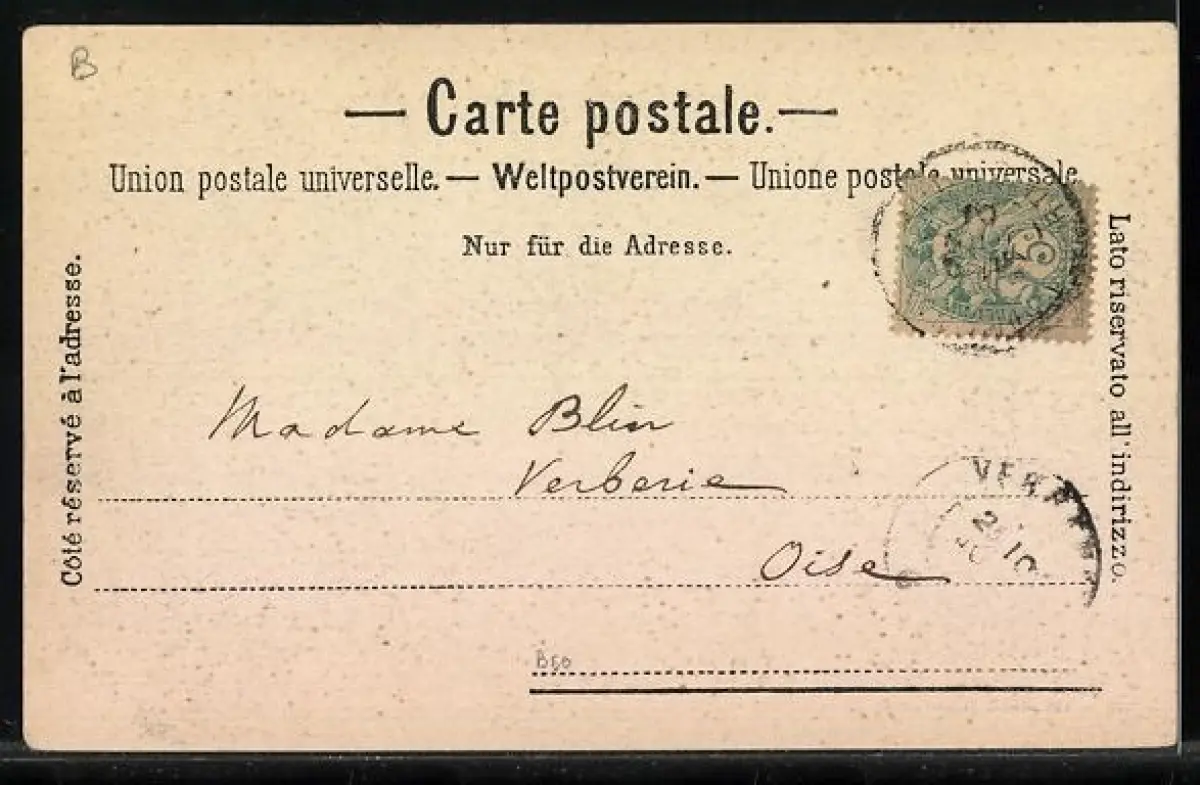 B
— Carte postale. —
Union postale universelle. — Weltpostverein. — Unione postale universale.
Nur für die Adresse.
Côté réservé à l'adresse.
Lato riservato all'indirizzo.
Madame Blin
Verberie
Oise
B50